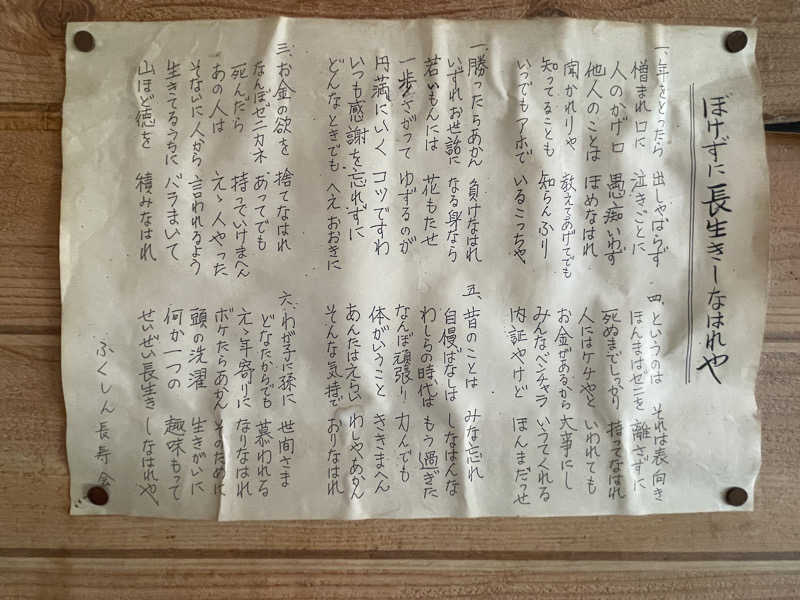 ぼけずに長生きしなはれや
一、年をとったら 出しゃばらず
憎まれ口に 泣きごとに
人のかげ口 愚痴いわず
他人のことは ほめなはれ
聞かれりゃ 教えてあげてでも
知ってることも 知らんふり
いつでもアホで いるこっちゃ
一、勝ったらあかん 負けなはれ
いずれお世話に なる身なら
若いもんには 花もたせ
一歩さがって ゆずるのが
円満にいく コツですわ
いつも感謝を 忘れずに
どんなときでも へえおおきに
三、お金の欲を 捨てなはれ
なんぼゼニカネ あってでも
死んだら 持っていけまへん
あの人は えゝ人やった
そないに人から 言われるよう
生きてるうちに バラまいて
山ほど徳を 積みなはれ
四、というのは それは表向き
ほんまはゼニを 離さずに
死ぬまでしっかり 持ってなはれ
人にはケチやと いわれても
お金があるから 大事にし
みんなベンチャラ いうてくれる
内証やけど ほんまだっせ
五、昔のことは みな忘れ
自慢ばなしは しなはんな
わしらの時代は もう過ぎた
なんぼ頑張り 力んでも
体がいうこと ききまへん
あんたはえらい わしゃあかん
そんな気持で おりなはれ
六、わが子に孫に 世間さま
どなたからでも 慕われる
えゝ年寄りに なりなはれ
ボケたらあかん そのために
頭の洗濯 生きがいに
何か一つの 趣味もって
せいぜい長生き しなはれや
ふくしん長寿会